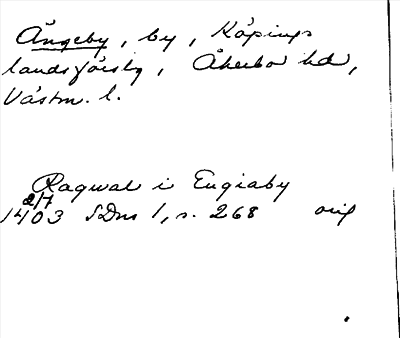 Ängeby, by, Köpings
landsförslg, Åkerbo hd,
Västm. l.
Ragwal i Engiaby
2/7
1403 SDns 1, s. 268 orig